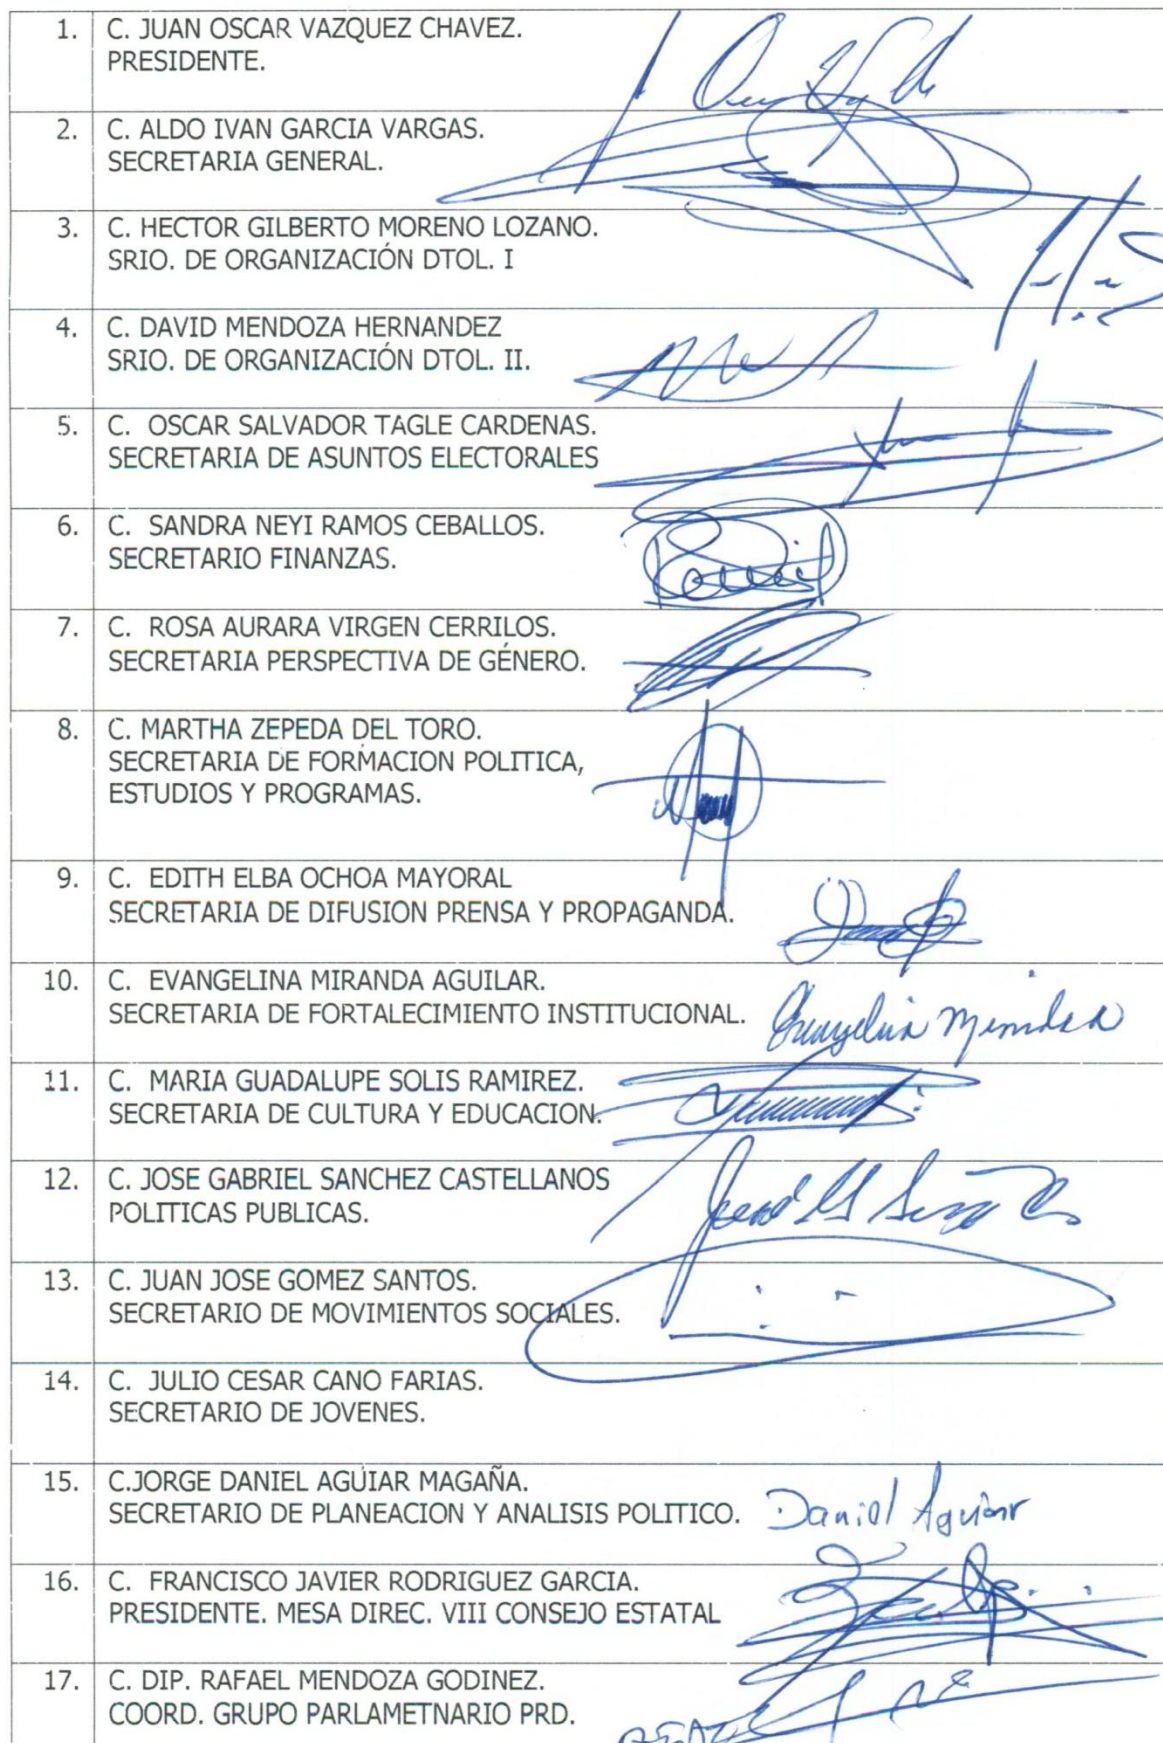 1. C. JUAN OSCAR VAZQUEZ CHAVEZ.
PRESIDENTE.
2. C. ALDO IVAN GARCIA VARGAS.
SECRETARIA GENERAL.
3. C. HECTOR GILBERTO MORENO LOZANO.
SRIO. DE ORGANIZACIÓN DTOL. I
4. C. DAVID MENDOZA HERNANDEZ
SRIO. DE ORGANIZACIÓN DTOL. II.
5. C. OSCAR SALVADOR TAGLE CARDENAS.
SECRETARIA DE ASUNTOS ELECTORALES
6. C. SANDRA NEYI RAMOS CEBALLOS.
SECRETARIO FINANZAS.
7. C. ROSA AURARA VIRGEN CERRILOS.
SECRETARIA PERSPECTIVA DE GÉNERO.
8. C. MARTHA ZEPEDA DEL TORO.
SECRETARIA DE FORMACION POLITICA,
ESTUDIOS Y PROGRAMAS.
9. C. EDITH ELBA OCHOA MAYORAL
SECRETARIA DE DIFUSION PRENSA Y PROPAGANDA.
10. C. EVANGELINA MIRANDA AGUILAR.
SECRETARIA DE FORTALECIMIENTO INSTITUCIONAL.
11. C. MARIA GUADALUPE SOLIS RAMIREZ.
SECRETARIA DE CULTURA Y EDUCACION.
12. C. JOSE GABRIEL SANCHEZ CASTELLANOS
POLITICAS PUBLICAS.
13. C. JUAN JOSE GOMEZ SANTOS.
SECRETARIO DE MOVIMIENTOS SOCIALES.
14. C. JULIO CESAR CANO FARIAS.
SECRETARIO DE JOVENES.
15. C.JORGE DANIEL AGUIAR MAGAÑA.
SECRETARIO DE PLANEACION Y ANALISIS POLITICO. Daniel Aguiar
16. C. FRANCISCO JAVIER RODRIGUEZ GARCIA.
PRESIDENTE. MESA DIREC. VIII CONSEJO ESTATAL
17. C. DIP. RAFAEL MENDOZA GODINEZ.
COORD. GRUPO PARLAMETNARIO PRD.